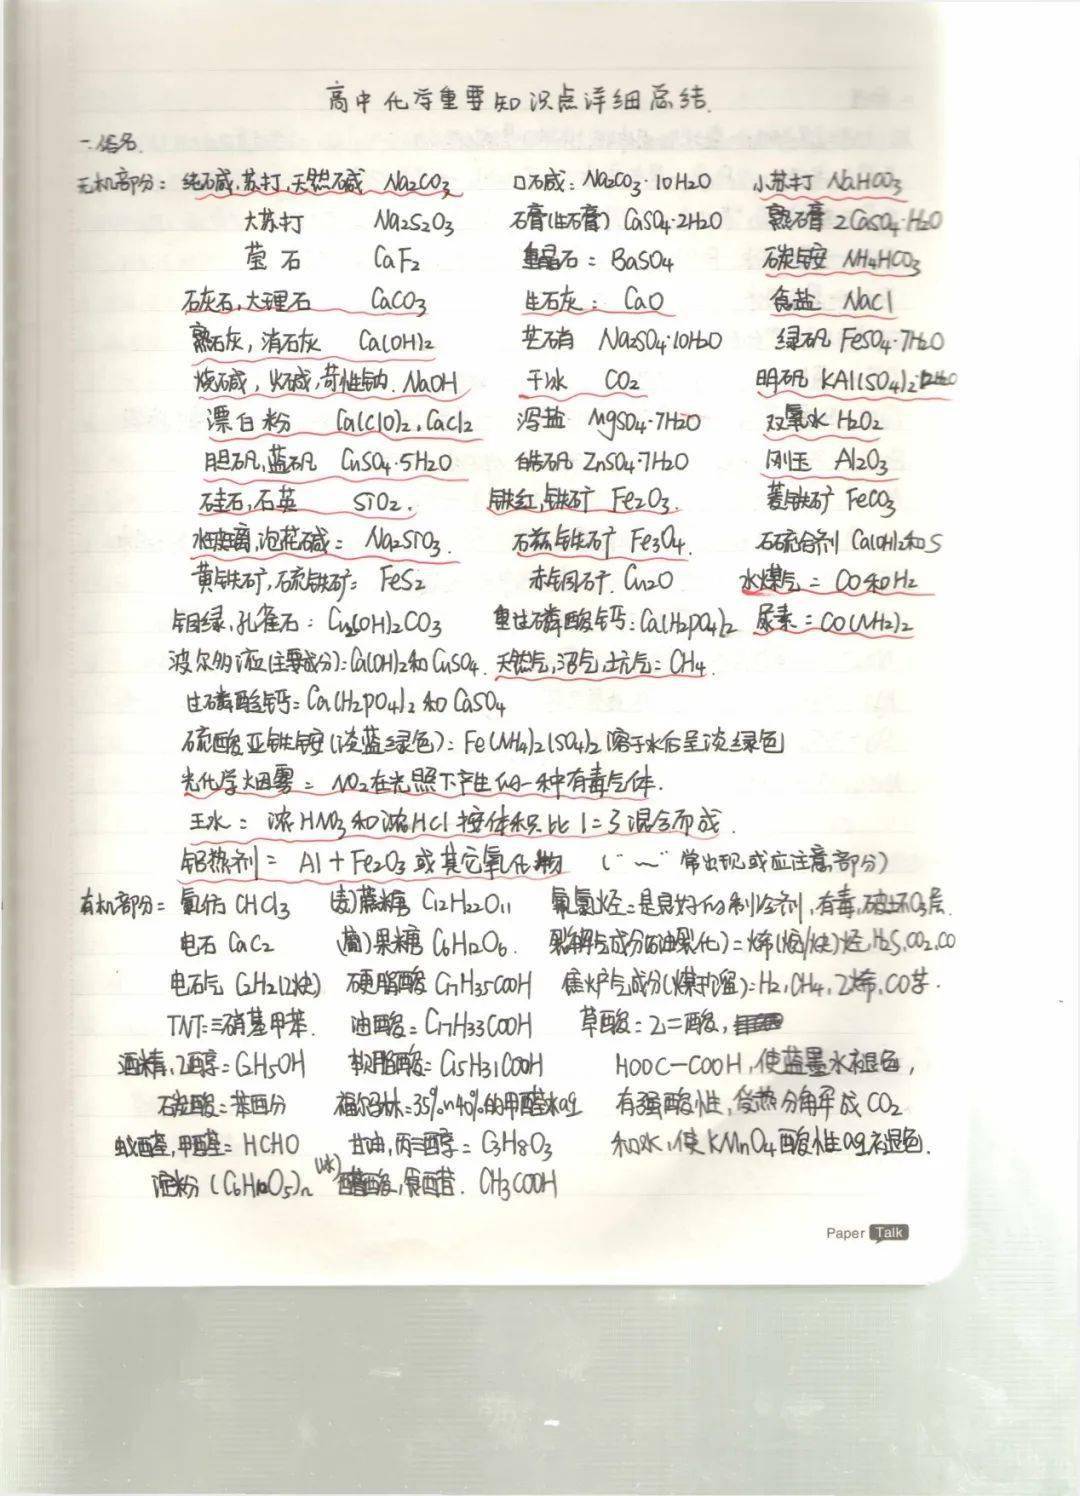 高中化学重要知识点详细总结.
一.俗名.
无机部分: 纯碱,苏打,天然碱 Na2CO3 口碱: Na2CO3·10H2O 小苏打 NaHCO3
大苏打 Na2S2O3 石膏(生石膏) CaSO4·2H2O 熟石膏 2CaSO4·H2O
莹石 CaF2 重晶石: BaSO4 碳铵 NH4HCO3
石灰石,大理石 CaCO3 生石灰: CaO 食盐 NaCl
熟石灰,消石灰 Ca(OH)2 芒硝 Na2SO4·10H2O 绿矾 FeSO4·7H2O
烧碱,火碱,苛性钠. NaOH 干冰 CO2 明矾 KAl(SO4)2·12H2O
漂白粉 Ca(ClO)2,CaCl2 泻盐 MgSO4·7H2O 双氧水 H2O2
胆矾,蓝矾 CuSO4·5H2O 皓矾 ZnSO4·7H2O 刚玉 Al2O3
硅石,石英 SiO2. 铁红,铁矿 Fe2O3. 菱铁矿 FeCO3
水玻璃,泡花碱: Na2SiO3. 石磁铁矿 Fe3O4. 石硫合剂 Ca(OH)2和S
黄铁矿,硫铁矿: FeS2 赤铜矿. Cu2O 水煤气: CO和H2
铜绿,孔雀石: Cu2(OH)2CO3 重过磷酸钙: Ca(H2PO4)2 尿素: CO(NH2)2
波尔多液(主要成分): Ca(OH)2和CuSO4. 天然气,沼气,坑气: CH4.
过磷酸钙: Ca(H2PO4)2和CaSO4
硫酸亚铁铵(淡蓝绿色): Fe(NH4)2(SO4)2 溶于水后呈淡绿色
光化学烟雾: NO2在光照下产生的一种有毒气体.
王水: 浓HNO3和浓HCl按体积比1:3混合而成.
铝热剂: Al+Fe2O3或其它氧化物 ("~" 常出现或应注意部分)
有机部分: 氯仿 CHCl3 (麦)蔗糖 C12H22O11 氟氯烃:是良好的制冷剂,有毒,破坏O3层.
电石 CaC2 (葡)果糖 C6H12O6. 裂解气成分(石油裂化): 烯(烷/炔)烃,H2S,CO2,CO
电石气 C2H2(乙炔) 硬脂酸 C17H35COOH 焦炉气成分(煤干馏): H2,CH4,乙烯,CO等.
TNT:三硝基甲苯. 油酸: C17H33COOH 草酸:乙二酸,
酒精,乙醇: C2H5OH 软脂酸: C15H31COOH HOOC-COOH,使蓝墨水褪色,
石碳酸:苯酚 福尔马林:35%~40%的甲醛水aq 有强酸性,受热分解成CO2
蚁醛,甲醛: HCHO 甘油,丙三醇: C3H8O3 和水,使KMnO4酸性aq褪色.
淀粉(C6H10O5)n (冰)醋酸,食醋. CH3COOH
Paper Talk